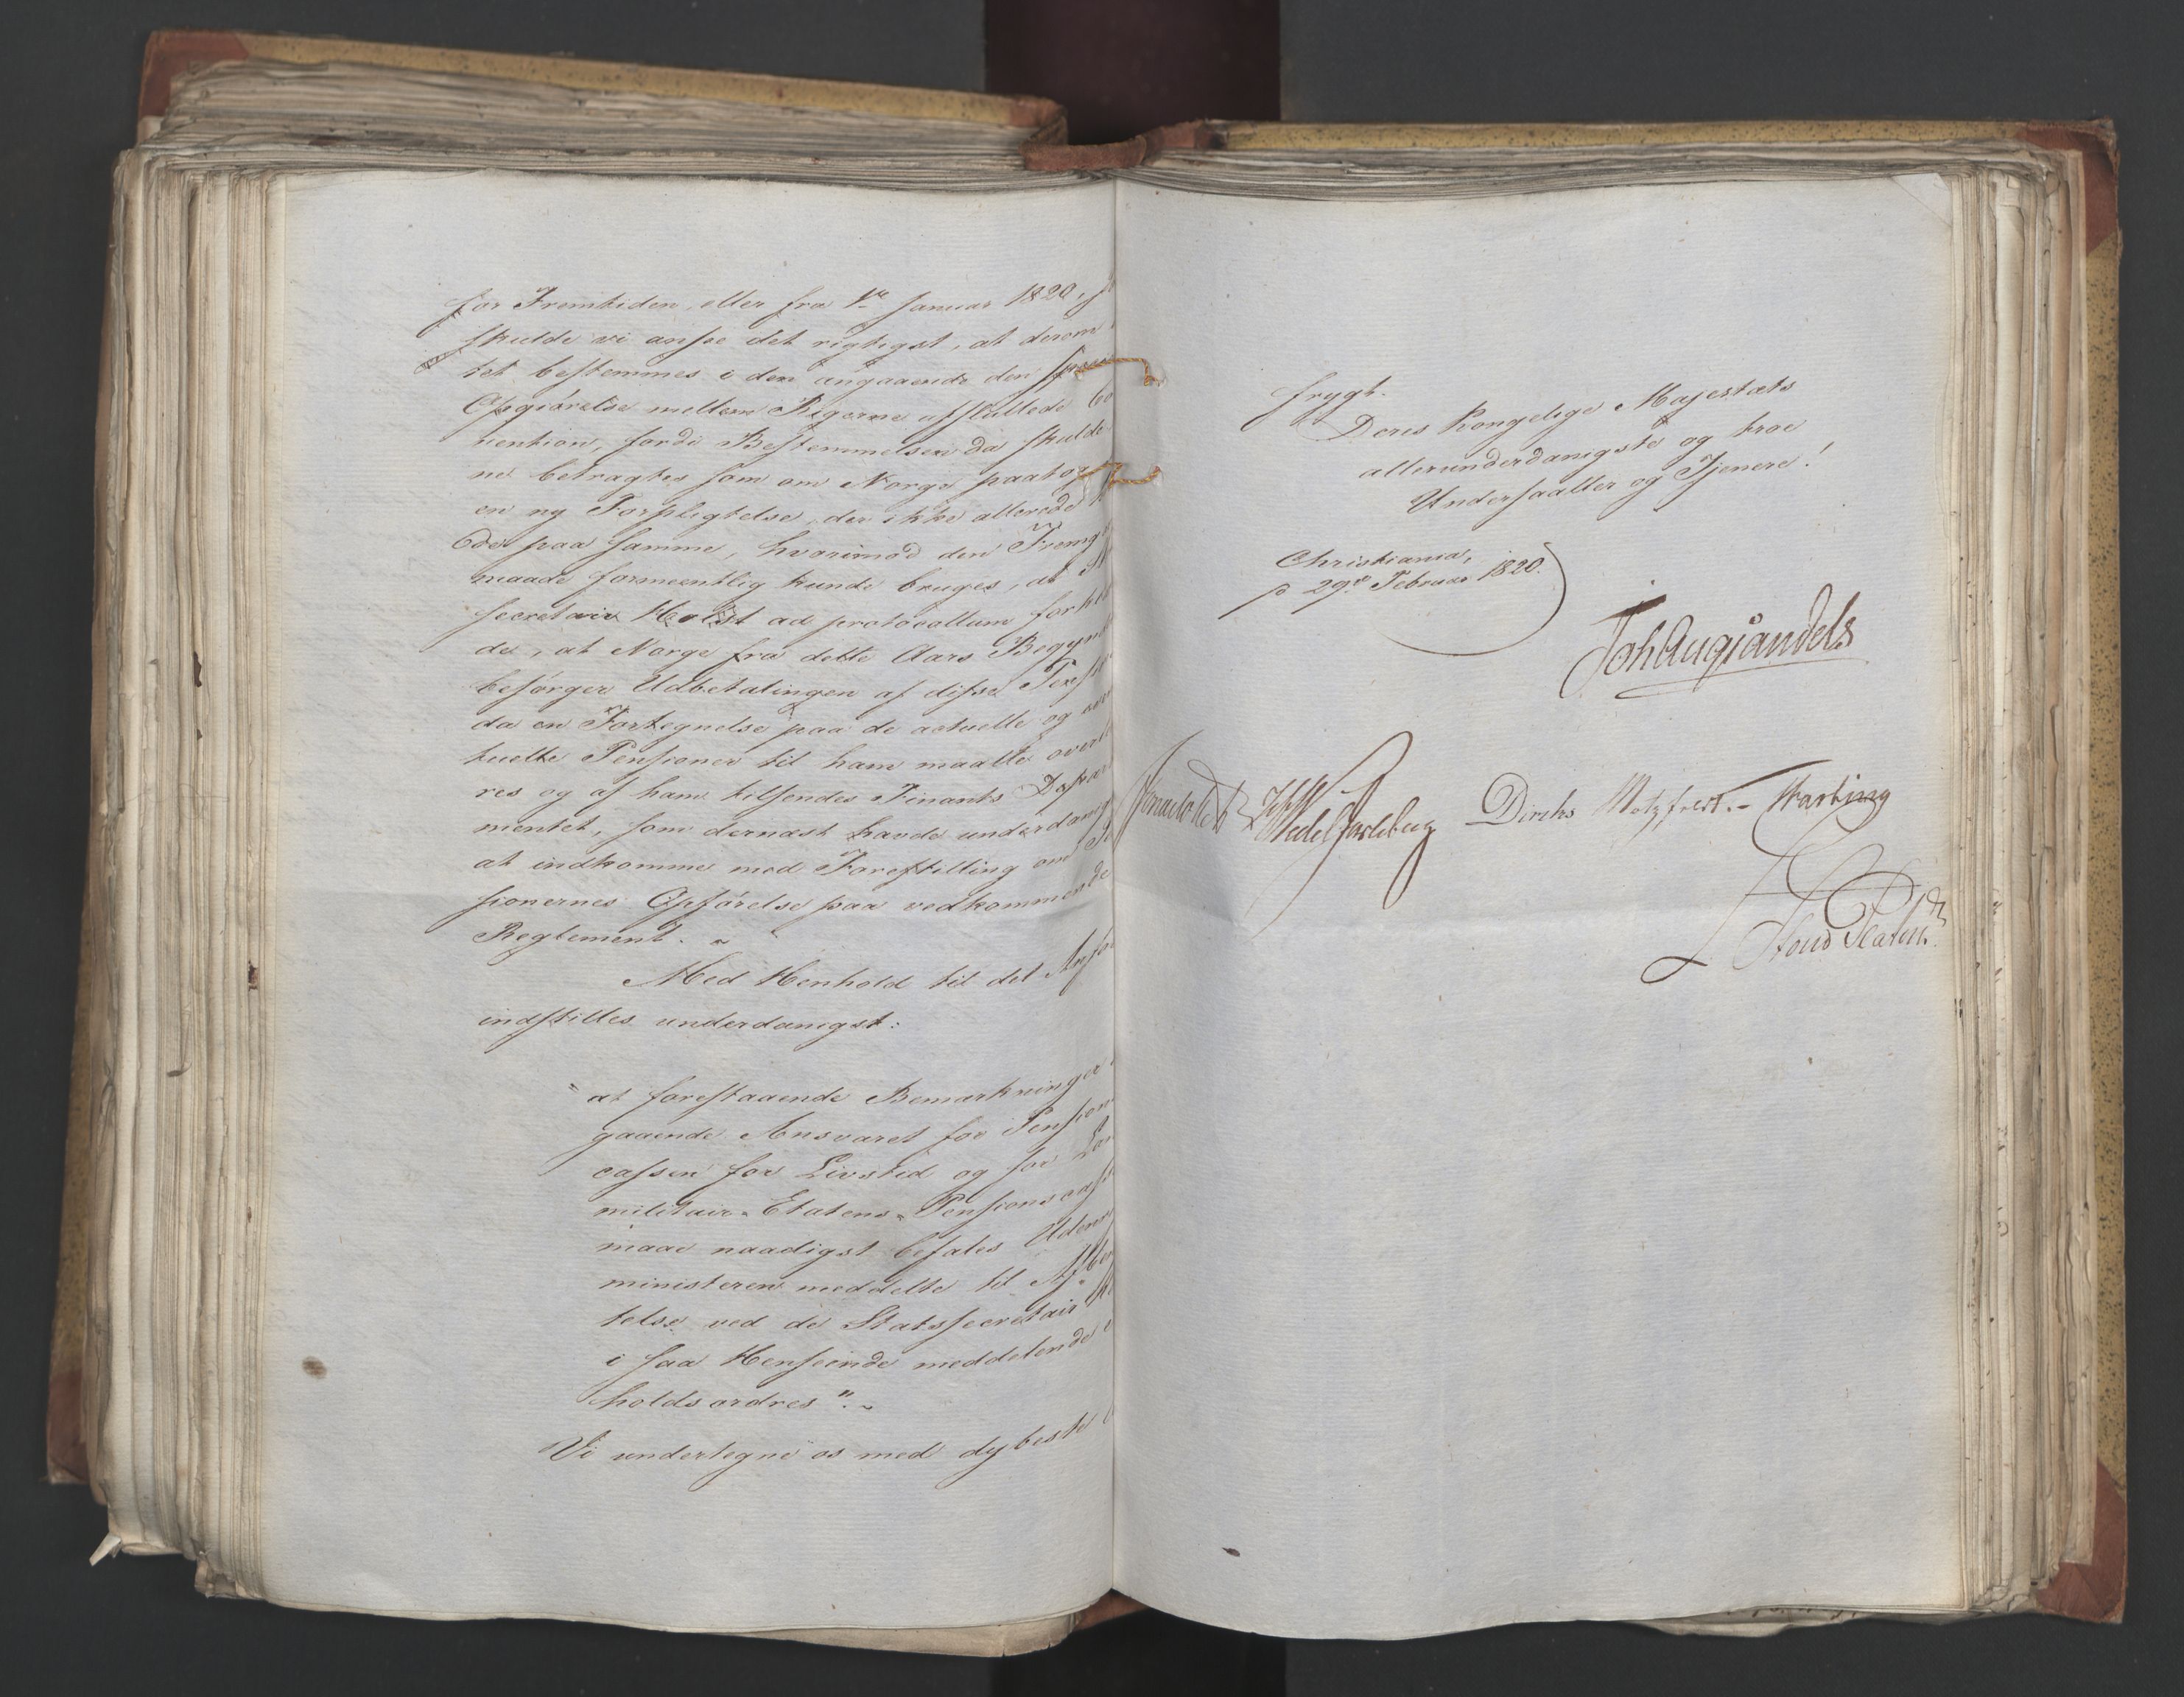 for Fremtiden, eller fra 1ste Januar 1820,
skulde vi ansee det rigtigst, at derom
tet bestemmes i den angaaende den
Opgiørelse mellem Rigerne afsluttede Co
vention, fordi Bestemmelsen da skulde
ne betragtes som om Norge paatog
en ny Forpligtelse, der ikke allerede
ede paa samme, hvorimod den Fremg
maade formeentlig kunde bruges, at St
secretair Holst ad protocollum forkl
de, at Norge fra dette Aars Begynd
besørger Udbetalingen af disse Pens
da en Fortegnelse paa de actuelle og even
tuelle Pensioner til ham maatte overl
res og af ham tilsendes Finants Depar
mentet, som dernæst havde underdanig
at indkomme med Forestilling om Pen
sionernes Opførelse paa vedkommende
Reglement. -
Med Henhold til det Anfø
indstilles underdanigst:
"at forestaaende Bemærkninger
gaaende Ansvaret for Pension
cassen for Livstid og for Lan
militair-Etatens-Pensionscass
maae naadigst befales Uden
ministeren meddelte til Afben
telse ved de Statssecretair
i saa Henseende meddelende
holdsordres". -
Vi undertegne os med dybeste
frygt.
Deres Kongelige Majestæts
allerunderdanigste og troe
Undersaatter og Tjenere!
Christiania,
p 29de Februar 1820.
Joh Aug Sandels
JCHWedel Jarlsberg Diriks Motzfeldt. - Fasting